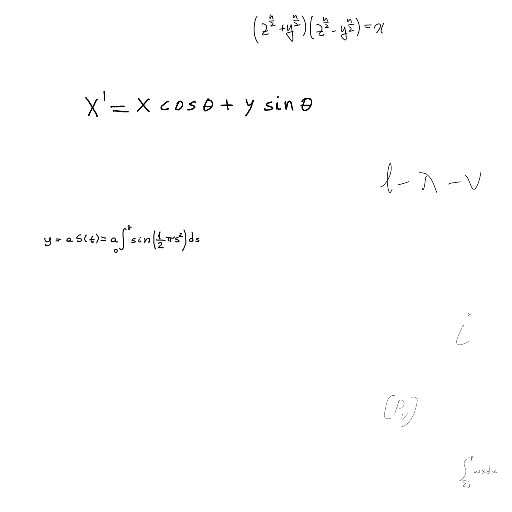 (z^{n/2} + y^{n/2})(z^{n/2} - y^{n/2}) = x
x' = x cos θ + y sin θ
l - λ - ν
y = a S(t) = a ∫_0^t sin(1/2 π s²) ds
i
[P_j]